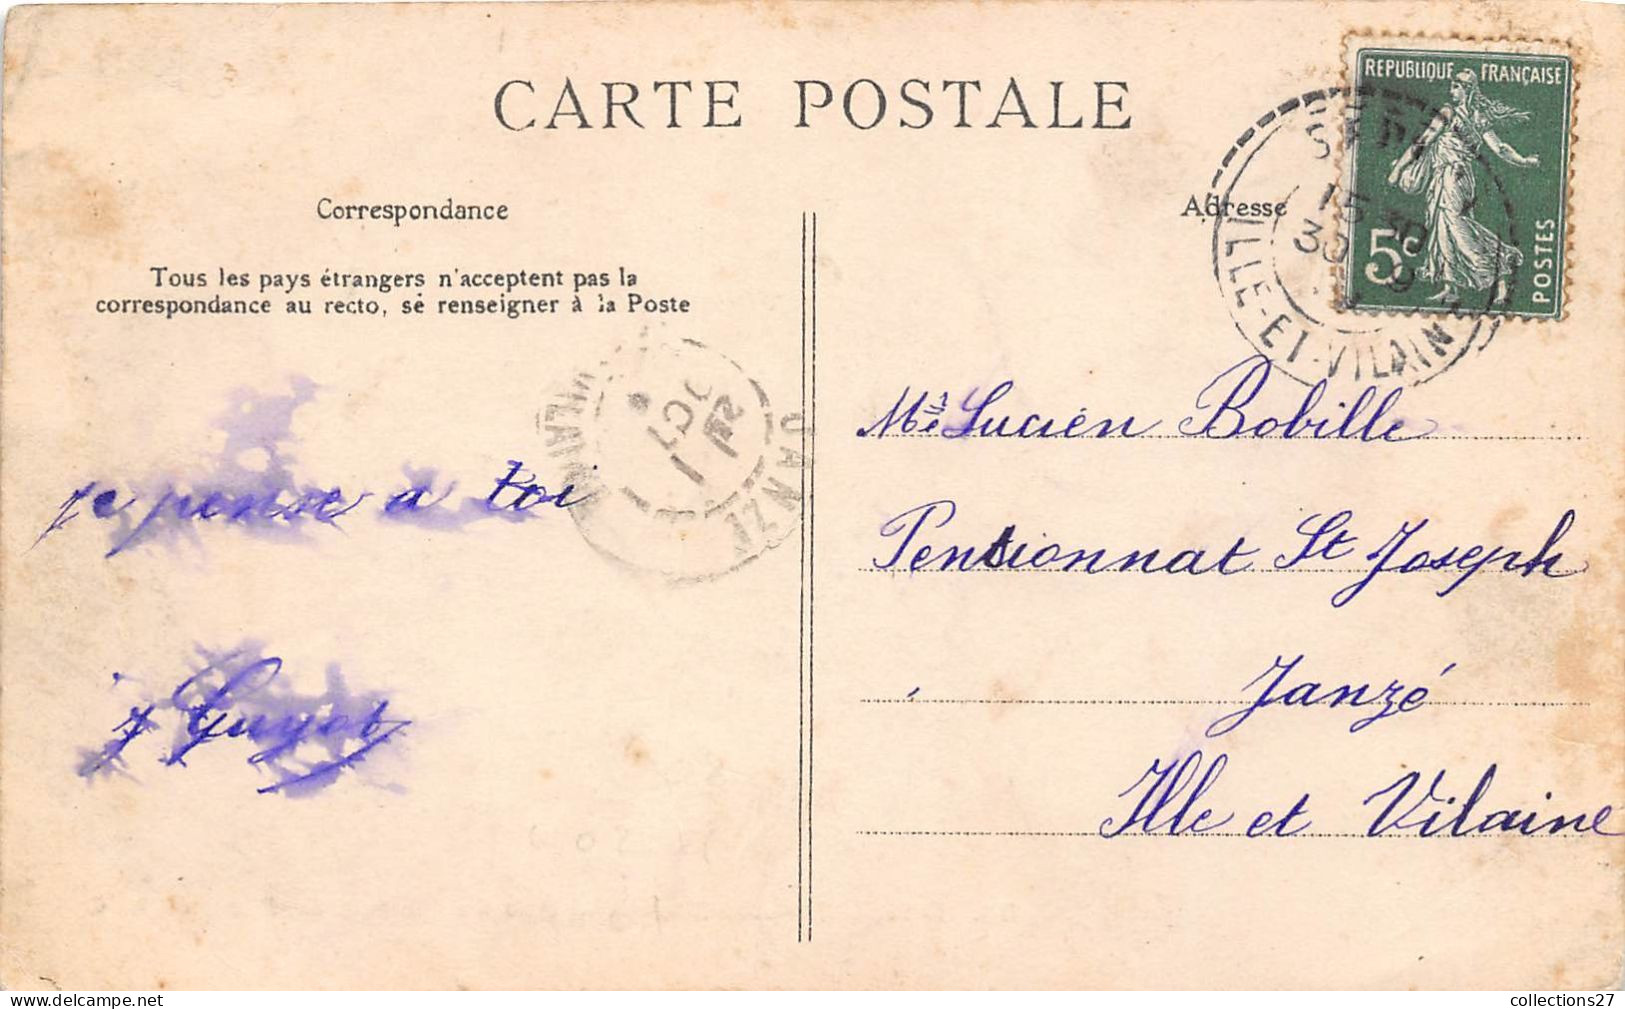 CARTE POSTALE
REPUBLIQUE FRANÇAISE
5c
POSTES
15 30
30 9
ILLE-ET-VILAINE
Correspondance
Adresse
Tous les pays étrangers n'acceptent pas la
correspondance au recto, se renseigner à la Poste
JANZÉ
VILAINE
1
OCT
je pense a toi
J Guyot
Lucien Bobille
Pensionnat St Joseph
Janzé
Ille et Vilaine
collections27